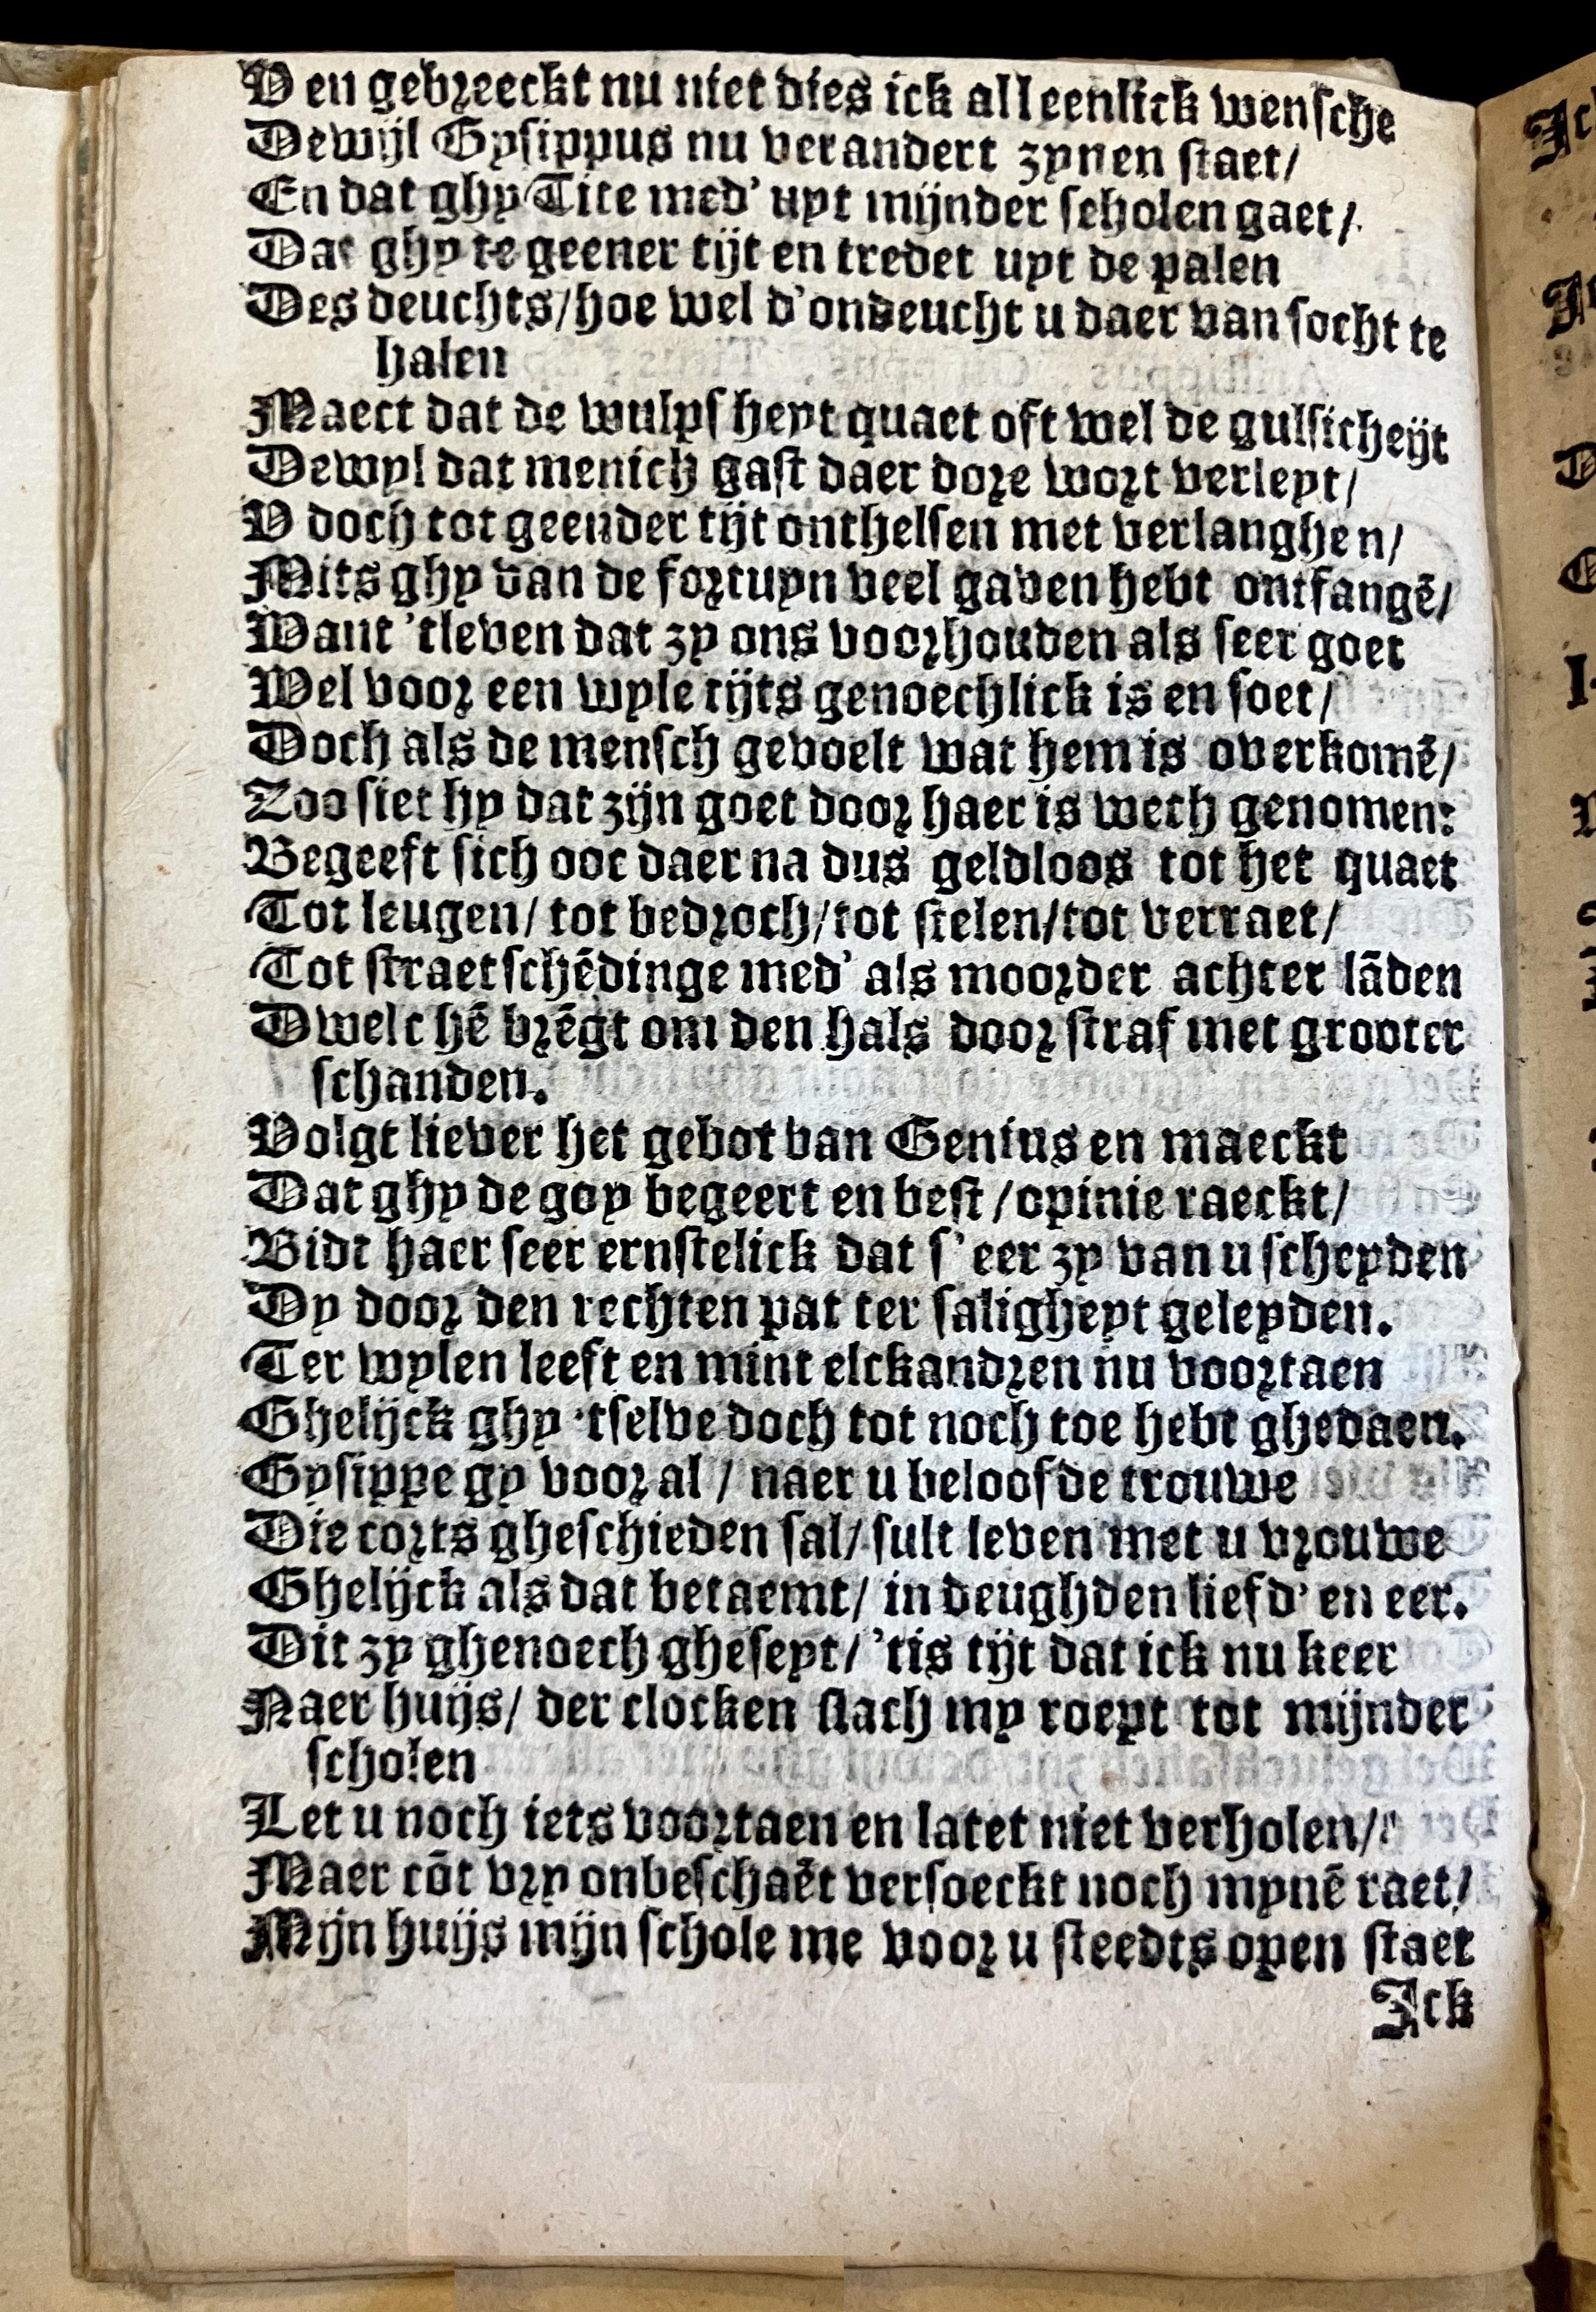 V en gebreeckt nu niet dies ick alleenlick wensche
Dewijl Gysippus nu verandert zynen staet/
En dat ghy Tite med' uyt mijnder scholen gaet/
Dat ghy te geener tijt en tredet uyt de palen
Des deuchts/hoe wel d'ondeucht u daer van socht te
halen
Maect dat de wulpsheyt quaet oft wel de gulsicheijt
Dewyl dat menich gast daer dore wort verleyt/
V doch tot geender tijt onthelsen met verlanghen/
Mits ghy van de fortuyn veel gaven hebt ontfangē/
Want 'tleven dat zy ons voorhouden als seer goet
Wel voor een wyle tijts genoechlick is en soet/
Doch als de mensch gevoelt wat hem is overkomē/
Zoo siet hy dat zijn goet door haer is wech genomen:
Begeeft sich ooc daer na dus geldloos tot het quaet
Tot leugen/ tot bedroch/tot stelen/tot verraet/
Tot straetschēdinge med' als moorder achter lāden
Dwelc hē brēgt om den hals door straf met grooter
schanden.
Volgt liever het gebot van Genius en maeckt
Dat ghy de goy begeert en best /opinie raeckt/
Bidt haer seer ernstelick dat s' eer zy van u scheyden
Dy door den rechten pat ter saligheyt geleyden.
Ter wylen leeft en mint elckandren nu voortaen
Ghelijck ghy 'tselve doch tot noch toe hebt ghedaen.
Gysippe gy voor al / naer u beloofde trouwe
Die corts gheschieden sal/ sult leven met u vrouwe
Ghelijck als dat betaemt/ in deughden liefd' en eer.
Dit zy ghenoech gheseyt/ 'tis tijt dat ick nu keer
Naer huijs/ der clocken slach my roept tot mijnder
scholen
Let u noch iets voortaen en latet niet verholen/
Maer cōt vry onbeschaēt versoeckt noch mynē raet/
Mijn huijs mijn schole me voor u steedts open staet
Ick